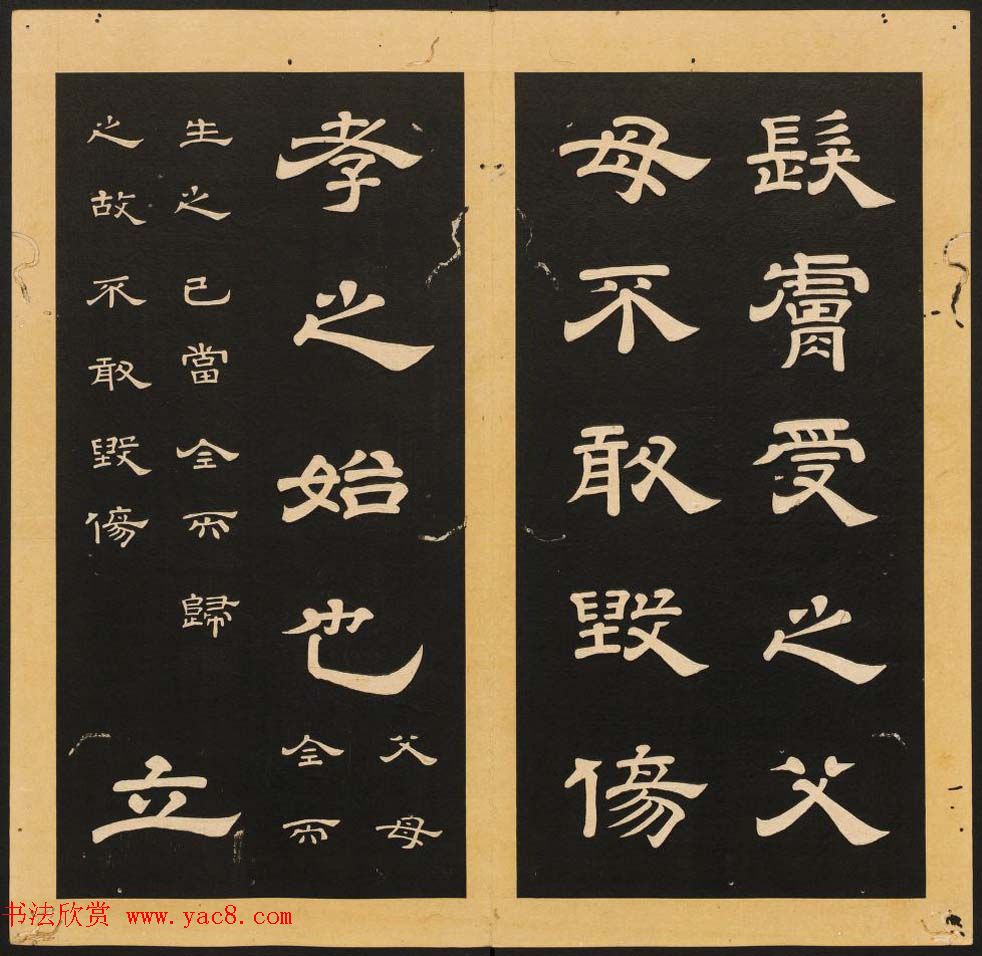 髮膚受之父
母不敢毀傷
孝之始也父母
全而
生之己當全而歸
之故不敢毀傷
立
书法欣赏 www.yac8.com